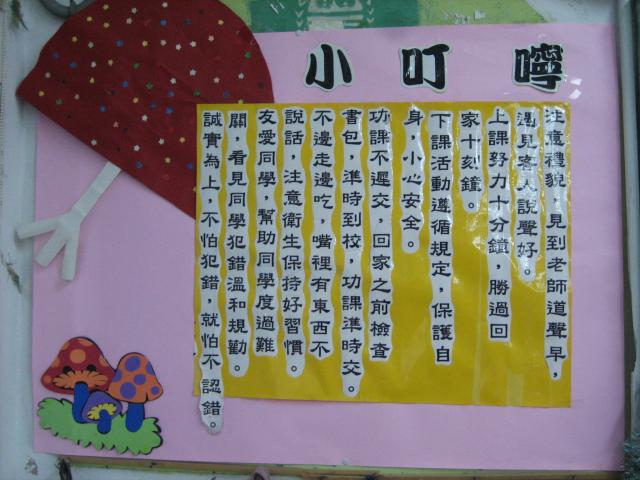 小叮嚀
注意禮貌，見到老師道聲早，
遇見客人說聲好。
上課努力十分鐘，勝過回
家十刻鐘。
下課活動遵循規定，保護自
身，小心安全。
功課不遲交，回家之前檢查
書包，準時到校，功課準時交。
不邊走邊吃，嘴裡有東西不
說話，注意衛生保持好習慣。
友愛同學，幫助同學度過難
關，看見同學犯錯溫和規勸。
誠實為上，不怕犯錯，就怕不認錯。